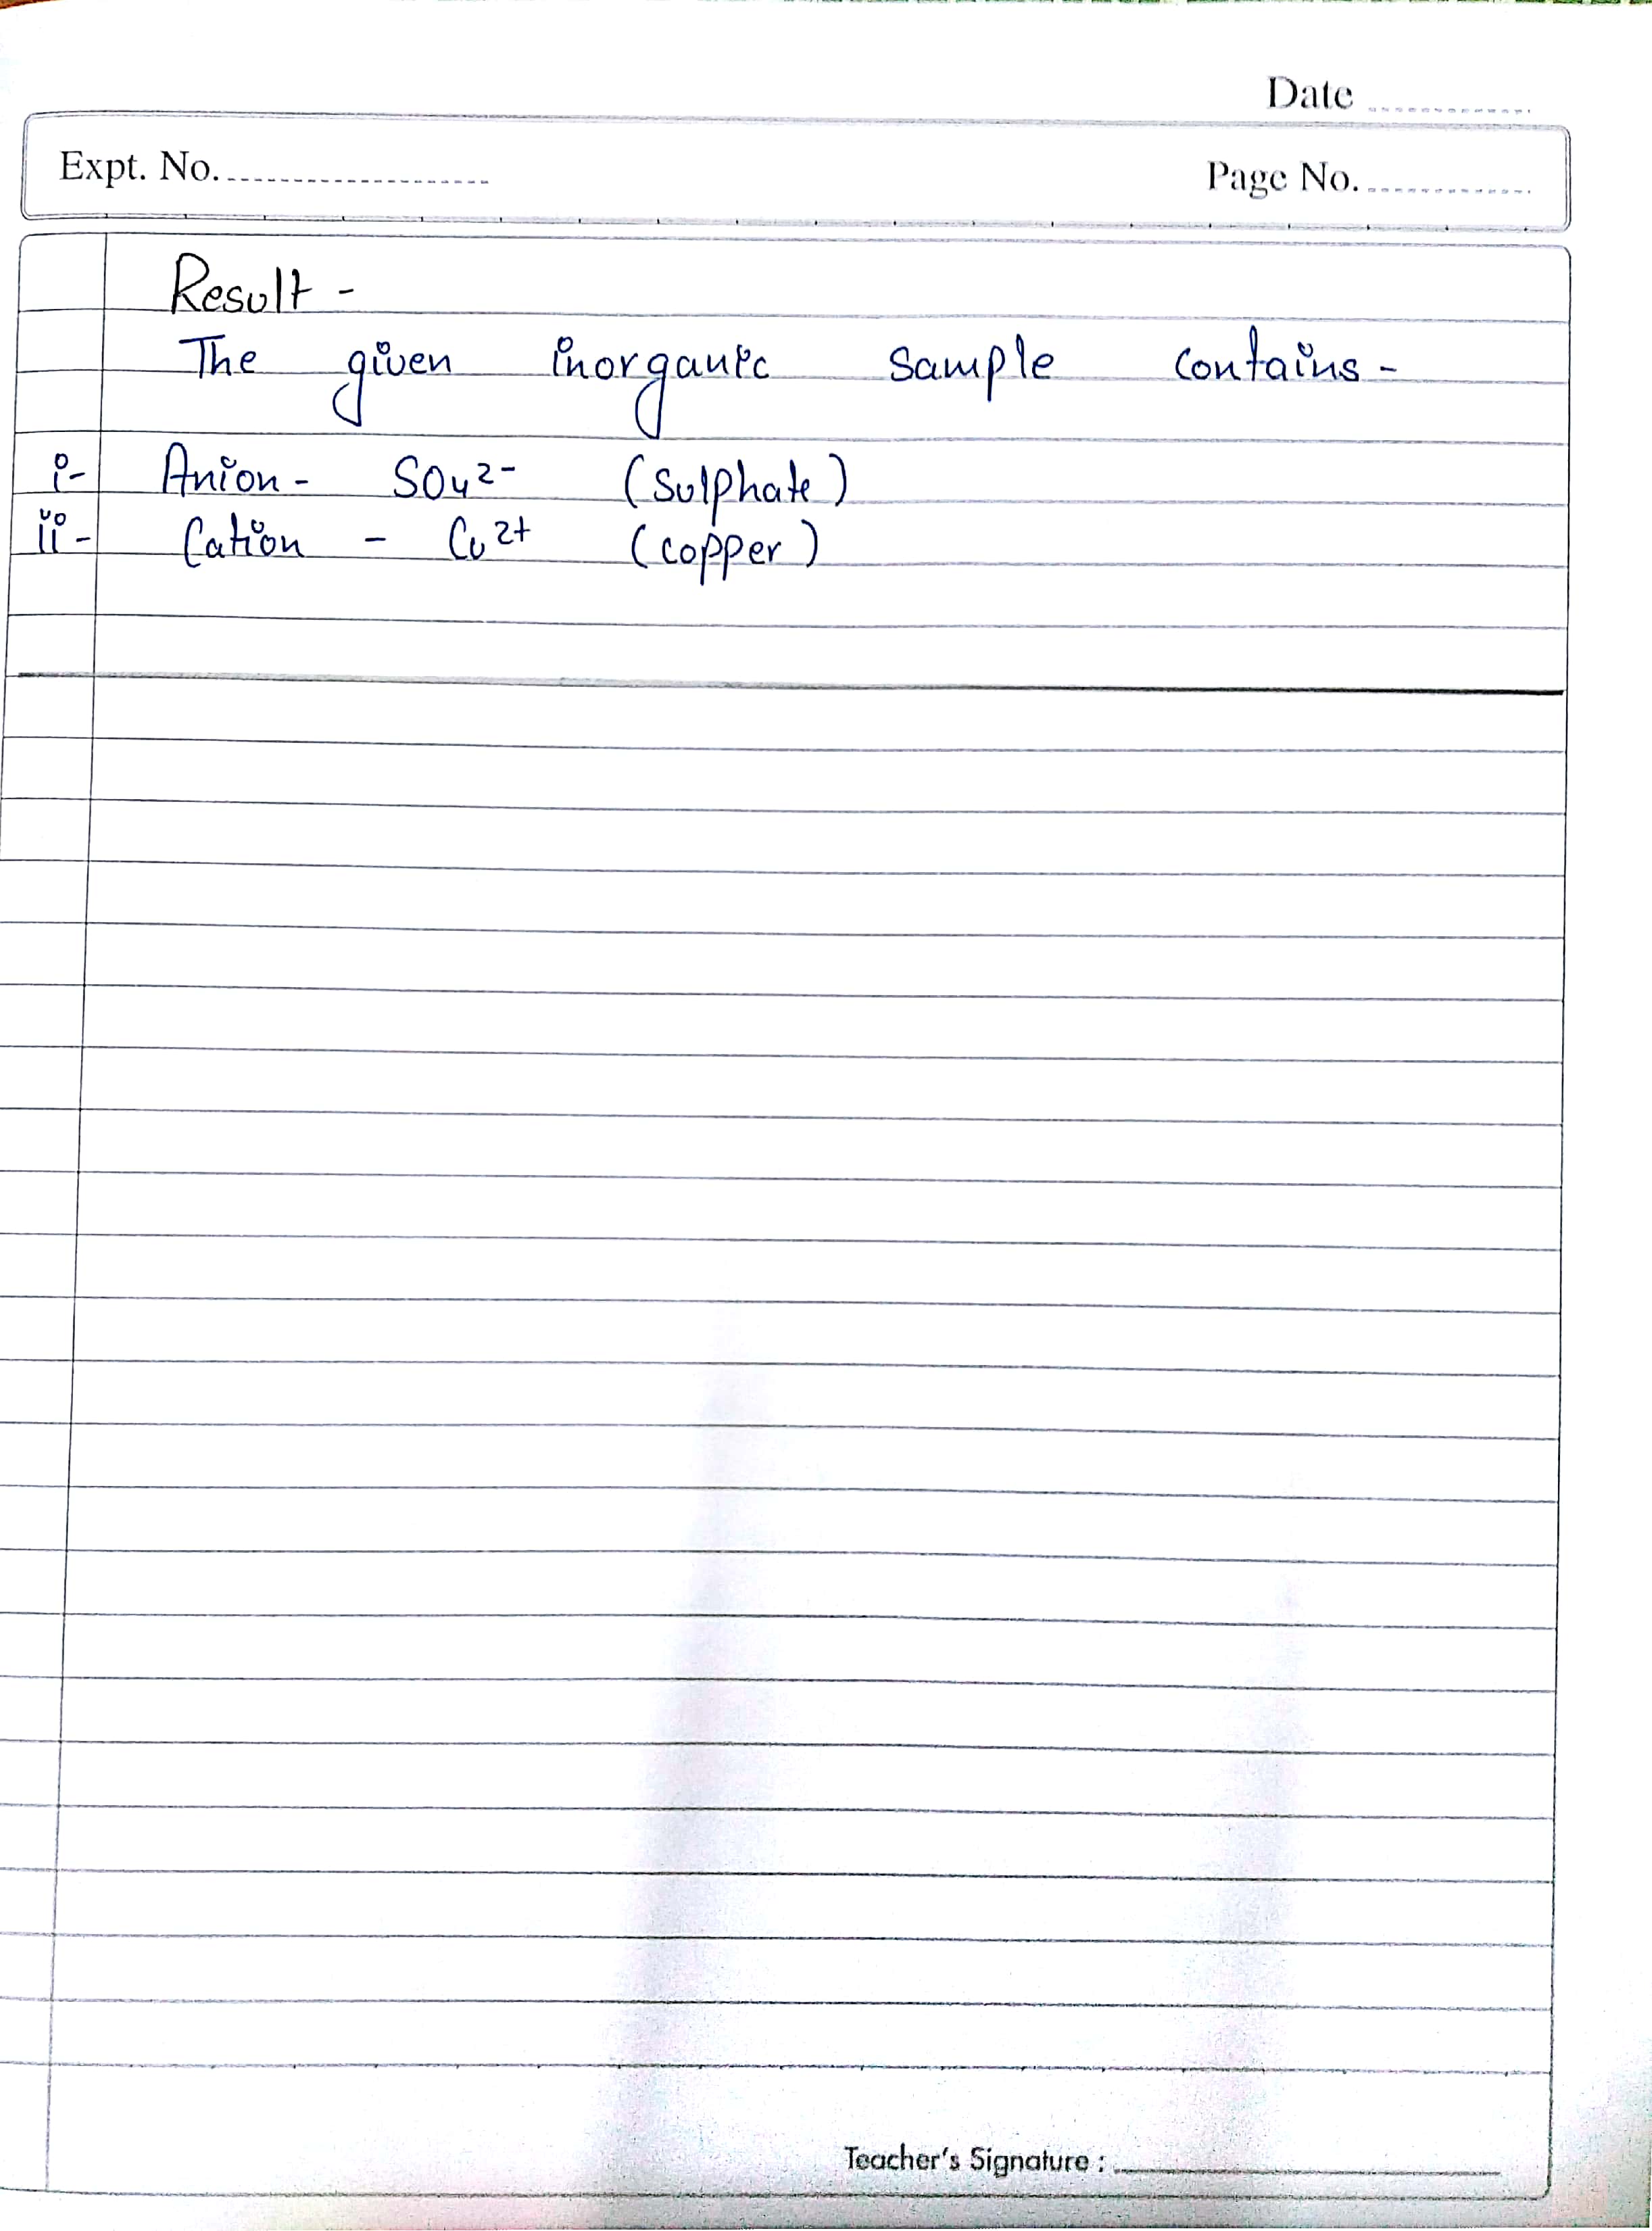 Date
Expt. No.
Page No.
Result -
The given inorganic sample contains -
i- Anion - SO4 2- (Sulphate)
ii- Cation - Cu 2+ (copper)
Teacher's Signature :